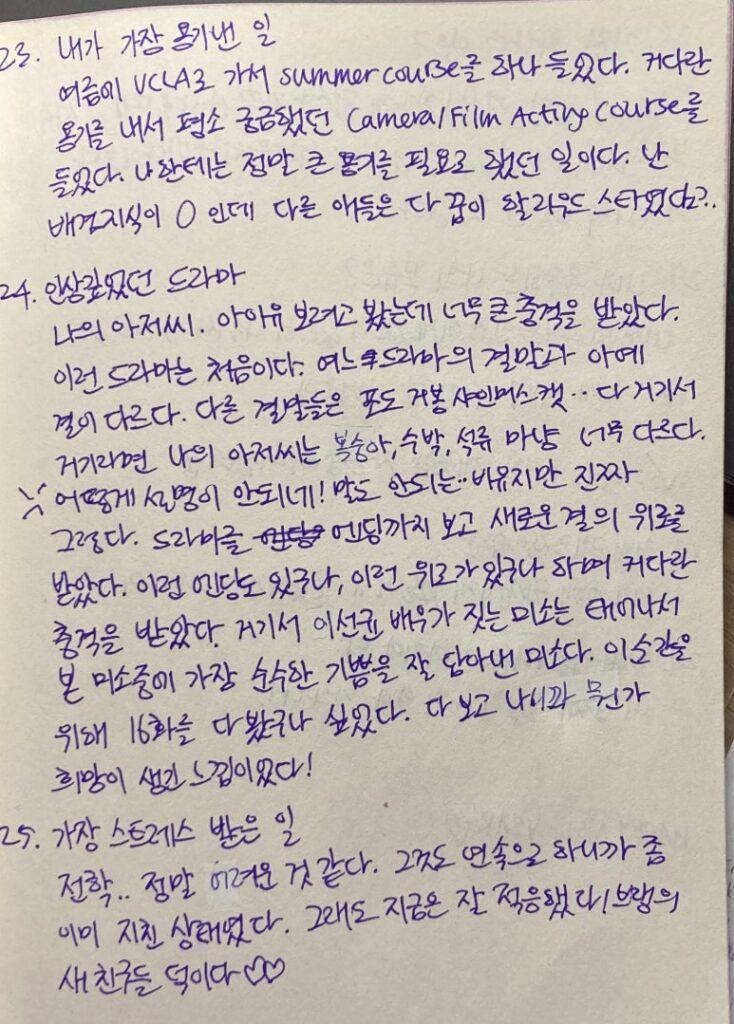 23. 내가 가장 용기낸 일
여름에 UCLA로 가서 summer course를 하나 들었다. 커다란
용기를 내서 평소 궁금했던 Camera/Film Acting Course를
들었다. 나한테는 정말 큰 용기를 필요로 했던 일이다. 난
배경지식이 0인데 다른 애들은 다 꿈이 할리우드 스타였다?..
24. 인상깊었던 드라마
나의 아저씨. 아이유 보려고 봤는데 너무 큰 충격을 받았다.
이런 드라마는 처음이다. 여느 드라마의 결말과 아예
결이 다르다. 다른 결말들은 포도 거봉 샤인머스캣.. 다 거기서
거기라면 나의 아저씨는 복숭아, 수박, 석류 마냥 너무 다르다.
어떻게 설명이 안되네! 말도 안되는.. 비유지만 진짜
그렇다. 드라마를 엔딩까지 보고 새로운 결의 위로를
받았다. 이런 엔딩도 있구나, 이런 위로가 있구나 하며 커다란
충격을 받았다. 거기서 이선균 배우가 짓는 미소는 태어나서
본 미소중에 가장 순수한 기쁨을 잘 담아낸 미소다. 이 순간을
위해 16화를 다 봤구나 싶었다. 다 보고 나니까 뭔가
희망이 생긴 느낌이었다!
25. 가장 스트레스 받은 일
전학.. 정말 어려운 것 같다. 그것도 연속으로 하니까 좀
이미 지친 상태였다. 그래도 지금은 잘 적응했다! 브랭의
새 친구들 덕이다♡♡